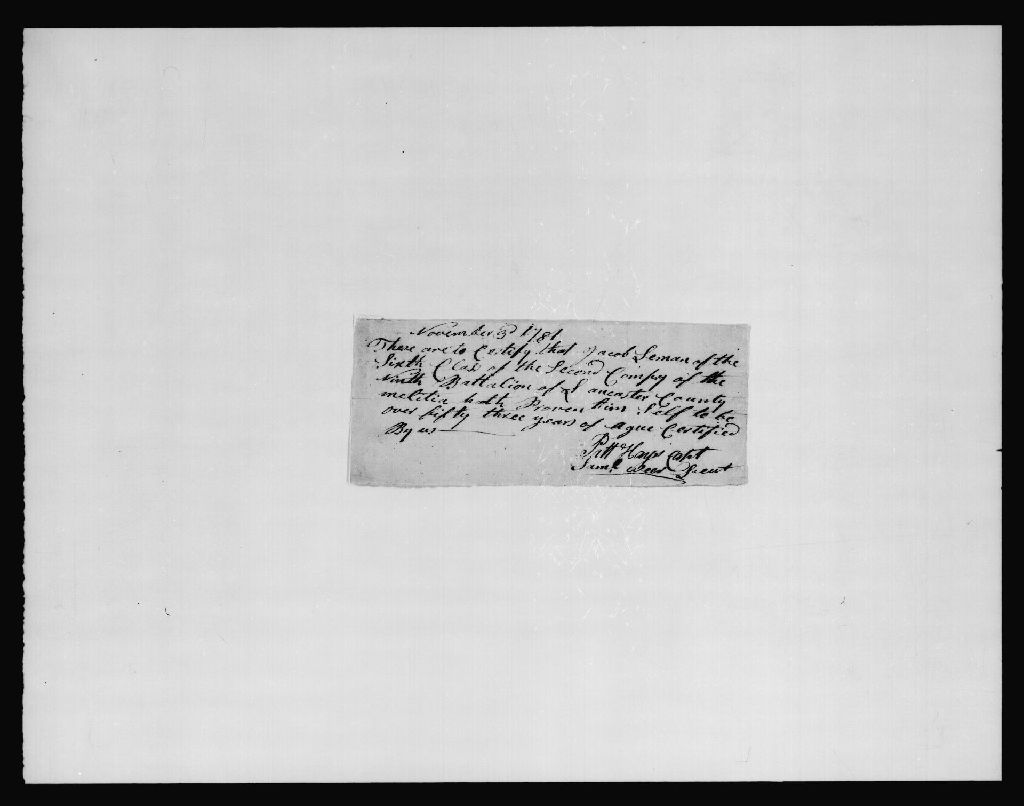 November 3d 1781
These are to Certify that Jacob Leman of the
Sixth Clas of the Second Compy of the
Ninth Battalion of Lancaster County
melitia hath Proven him Self to be
over fifty three years of Ague Certified
By us
Patt Hays Capt
Saml Weer Lieut